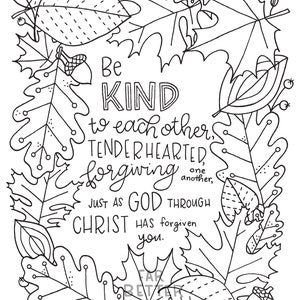 Be
KIND
to each other,
TENDERHEARTED,
forgiving one
another,
JUST AS GOD THROUGH
CHRIST HAS forgiven
you.
FAR
BETTER